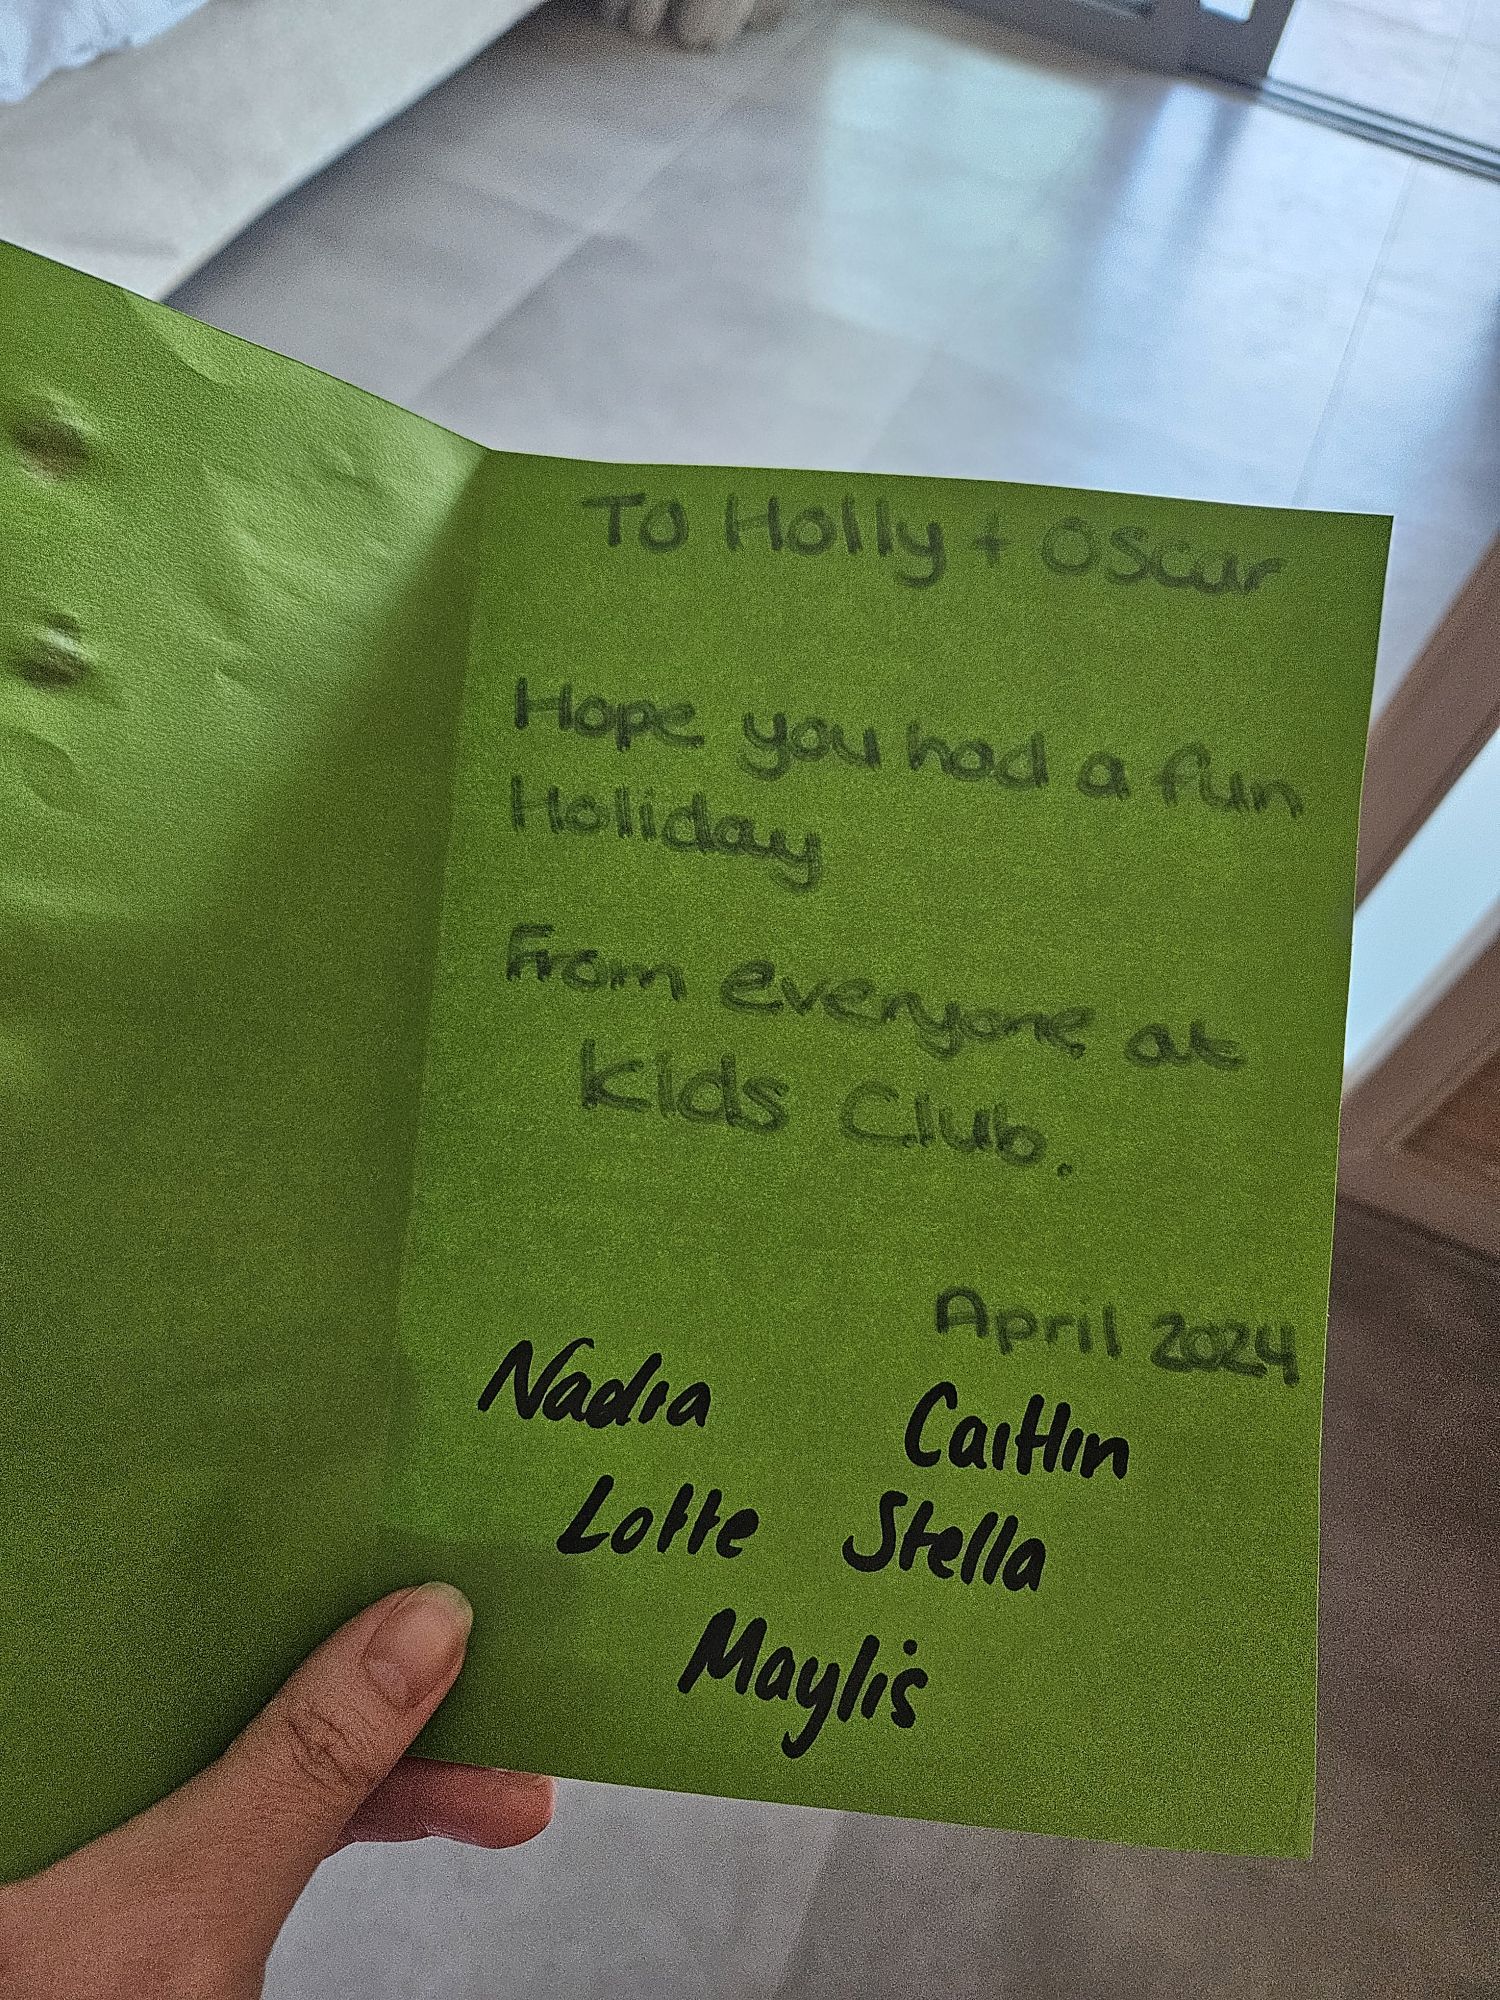 To Holly + Oscar
Hope you had a fun
Holiday
From everyone at
Kids Club.
April 2024
Nadia Caitlin
Lotte Stella
Maylis